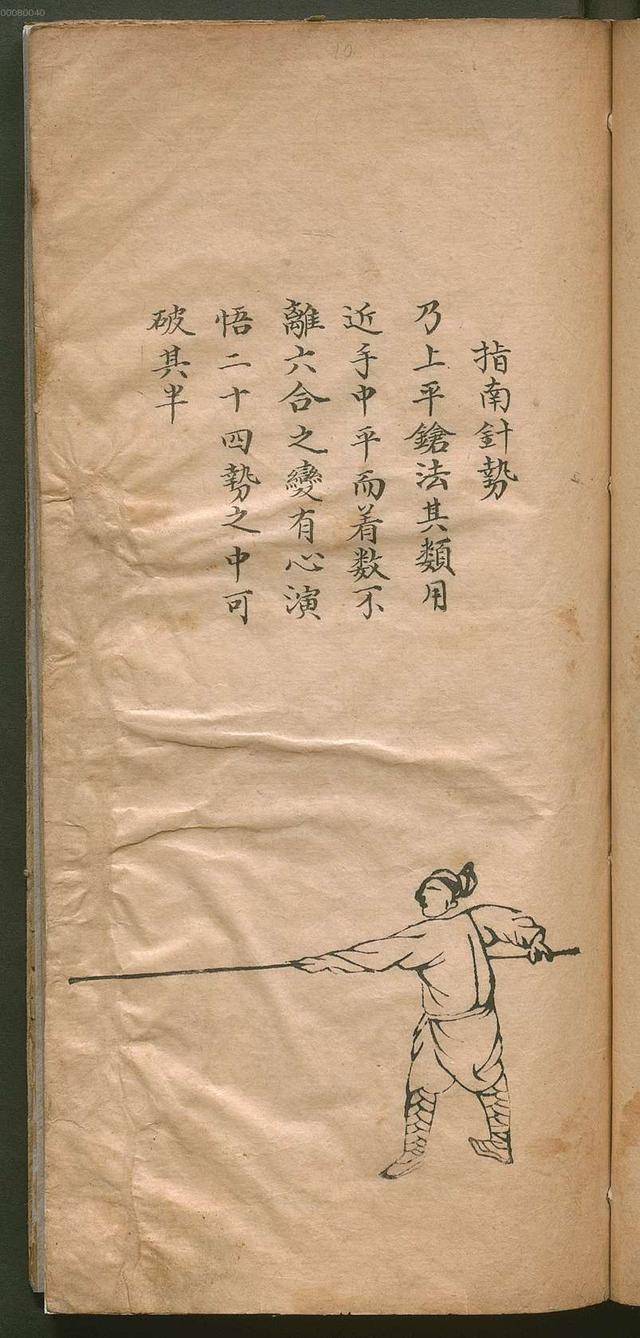 00080040
10
指南針勢
乃上平鎗法其類用
近手中平而着数不
離六合之變有心演
悟二十四勢之中可
破其半